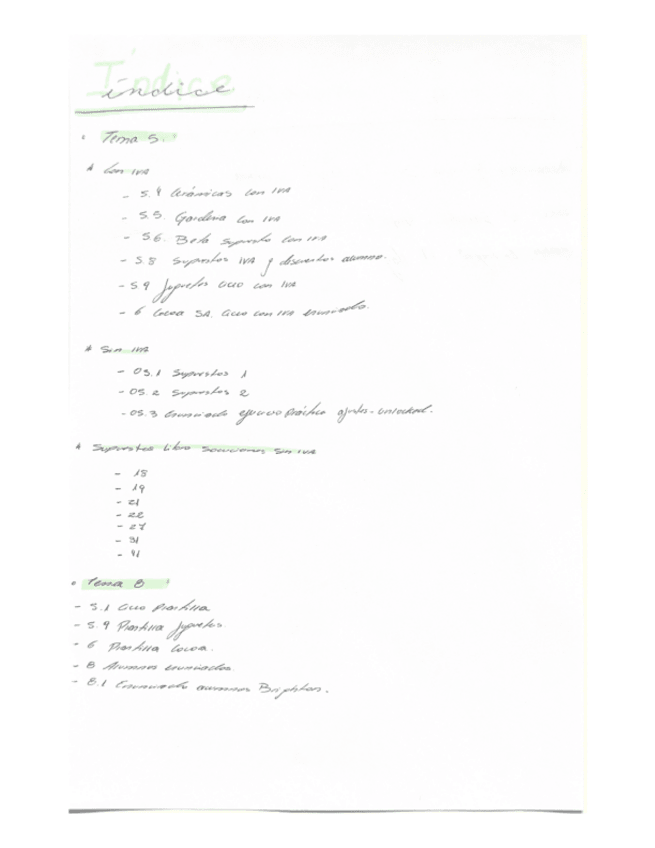 Índice
índice
• Tema 5.
* Con IVA
- 5.4 Cerámicas con IVA
- 5.5. Gardenia con IVA
- 5.6. Beta supuesto con IVA
- 5.8 Supuestos IVA y descuentos alumno.
- 5.9 Juguetes ciclo con IVA
- 6 Cocoa SA. Ciclo con IVA enunciado.
* Sin IVA
- 05.1 Supuestos 1
- 05.2 Supuestos 2
- 05.3 Enunciado ejercicio práctico ajustes-unlocked.
* Supuestos Libro soluciones Sin IVA
- 18
- 19
- 21
- 22
- 27
- 31
- 41
• Tema 8
- 5.1 Ciclo Plantilla
- 5.9 Plantilla juguetes.
- 6 Plantilla Cocoa.
- 8 Alumnos enunciados
- 8.1 Enunciado alumnos Brighton.